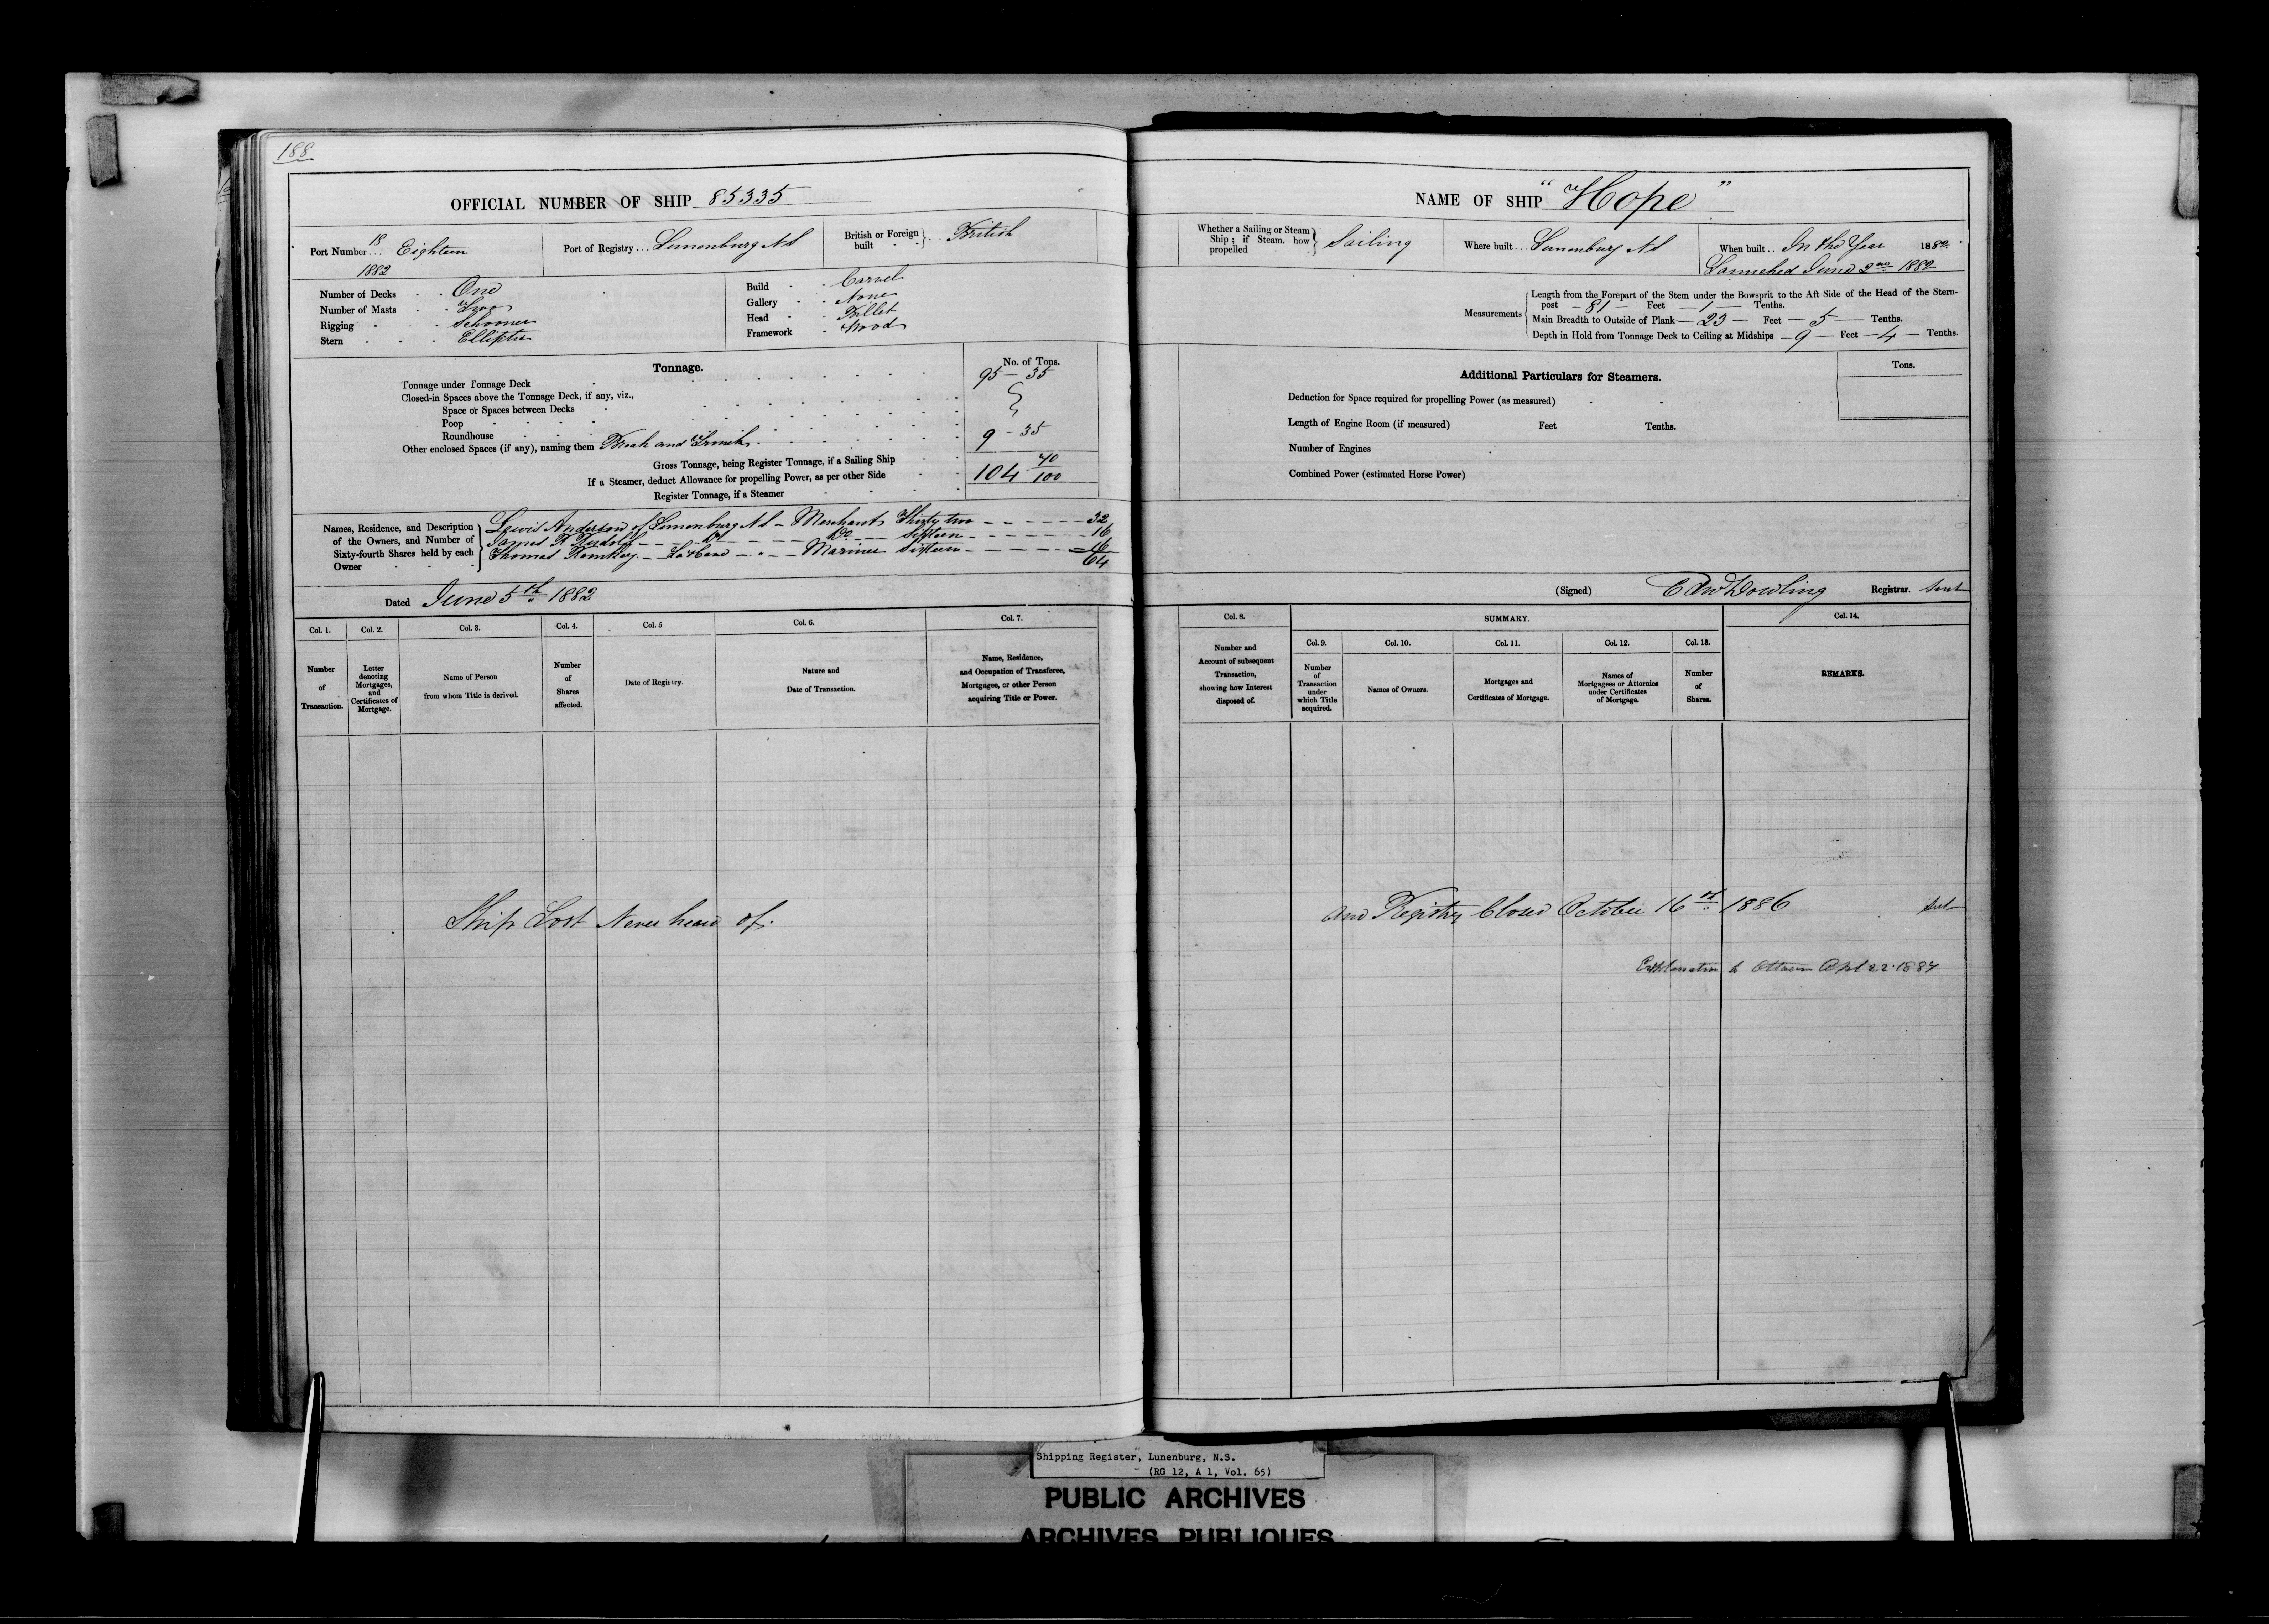 188
OFFICIAL NUMBER OF SHIP 85335
Port Number 18 Eighteen
1882
Port of Registry Lunenburg NS
British or Foreign built British
Number of Decks One
Number of Masts Two
Rigging Schooner
Stern Elliptic
Build Carvel
Gallery None
Head Billet
Framework Wood
Tonnage.
No. of Tons.
Tonnage under Tonnage Deck 95 - 35
Closed-in Spaces above the Tonnage Deck, if any, viz.,
Space or Spaces between Decks
Poop
Roundhouse
Other enclosed Spaces (if any), naming them Break and Trunk 9 - 35
Gross Tonnage, being Register Tonnage, if a Sailing Ship 104 70/100
If a Steamer, deduct Allowance for propelling Power, as per other Side
Register Tonnage, if a Steamer
Names, Residence, and Description of the Owners, and Number of Sixty-fourth Shares held by each Owner
Lewis Anderson of Lunenburg NS - Merchant Thirty two 32
James R Rudolf Do Do Sixteen 16
Thomas Romkey LaHave Mariner Sixteen 16
64
Dated June 5th 1882
Col. 1. Col. 2. Col. 3. Col. 4. Col. 5 Col. 6. Col. 7.
Number of Transaction.
Letter denoting Mortgages, and Certificates of Mortgage.
Name of Person from whom Title is derived.
Number of Shares affected.
Date of Registry.
Nature and Date of Transaction.
Name, Residence, and Occupation of Transferee, Mortgagee, or other Person acquiring Title or Power.
Ship Lost Never heard of.
NAME OF SHIP "Hope"
Whether a Sailing or Steam Ship; if Steam, how propelled Sailing
Where built Lunenburg NS
When built In the Year 1882
Launched June 2nd 1882
Measurements
Length from the Forepart of the Stem under the Bowsprit to the Aft Side of the Head of the Stern-
post - 81 - Feet - 1 - Tenths.
Main Breadth to Outside of Plank - 23 - Feet - 5 - Tenths.
Depth in Hold from Tonnage Deck to Ceiling at Midships - 9 - Feet - 4 - Tenths.
Additional Particulars for Steamers.
Tons.
Deduction for Space required for propelling Power (as measured)
Length of Engine Room (if measured) Feet Tenths.
Number of Engines
Combined Power (estimated Horse Power)
(Signed) Edw Dowling Registrar. Sent
Col. 8. SUMMARY. Col. 14.
Col. 9. Col. 10. Col. 11. Col. 12. Col. 13.
Number and Account of subsequent Transaction, showing how Interest disposed of.
Number of Transaction under which Title acquired.
Names of Owners.
Mortgages and Certificates of Mortgage.
Names of Mortgagees or Attornies under Certificates of Mortgage.
Number of Shares.
REMARKS.
and Registry Closed October 16th 1886 Sent
Explanation to Ottawa Apl 22 1887
Shipping Register, Lunenburg, N.S.
(RG 12, A 1, Vol. 65)
PUBLIC ARCHIVES
ARCHIVES PUBLIQUES